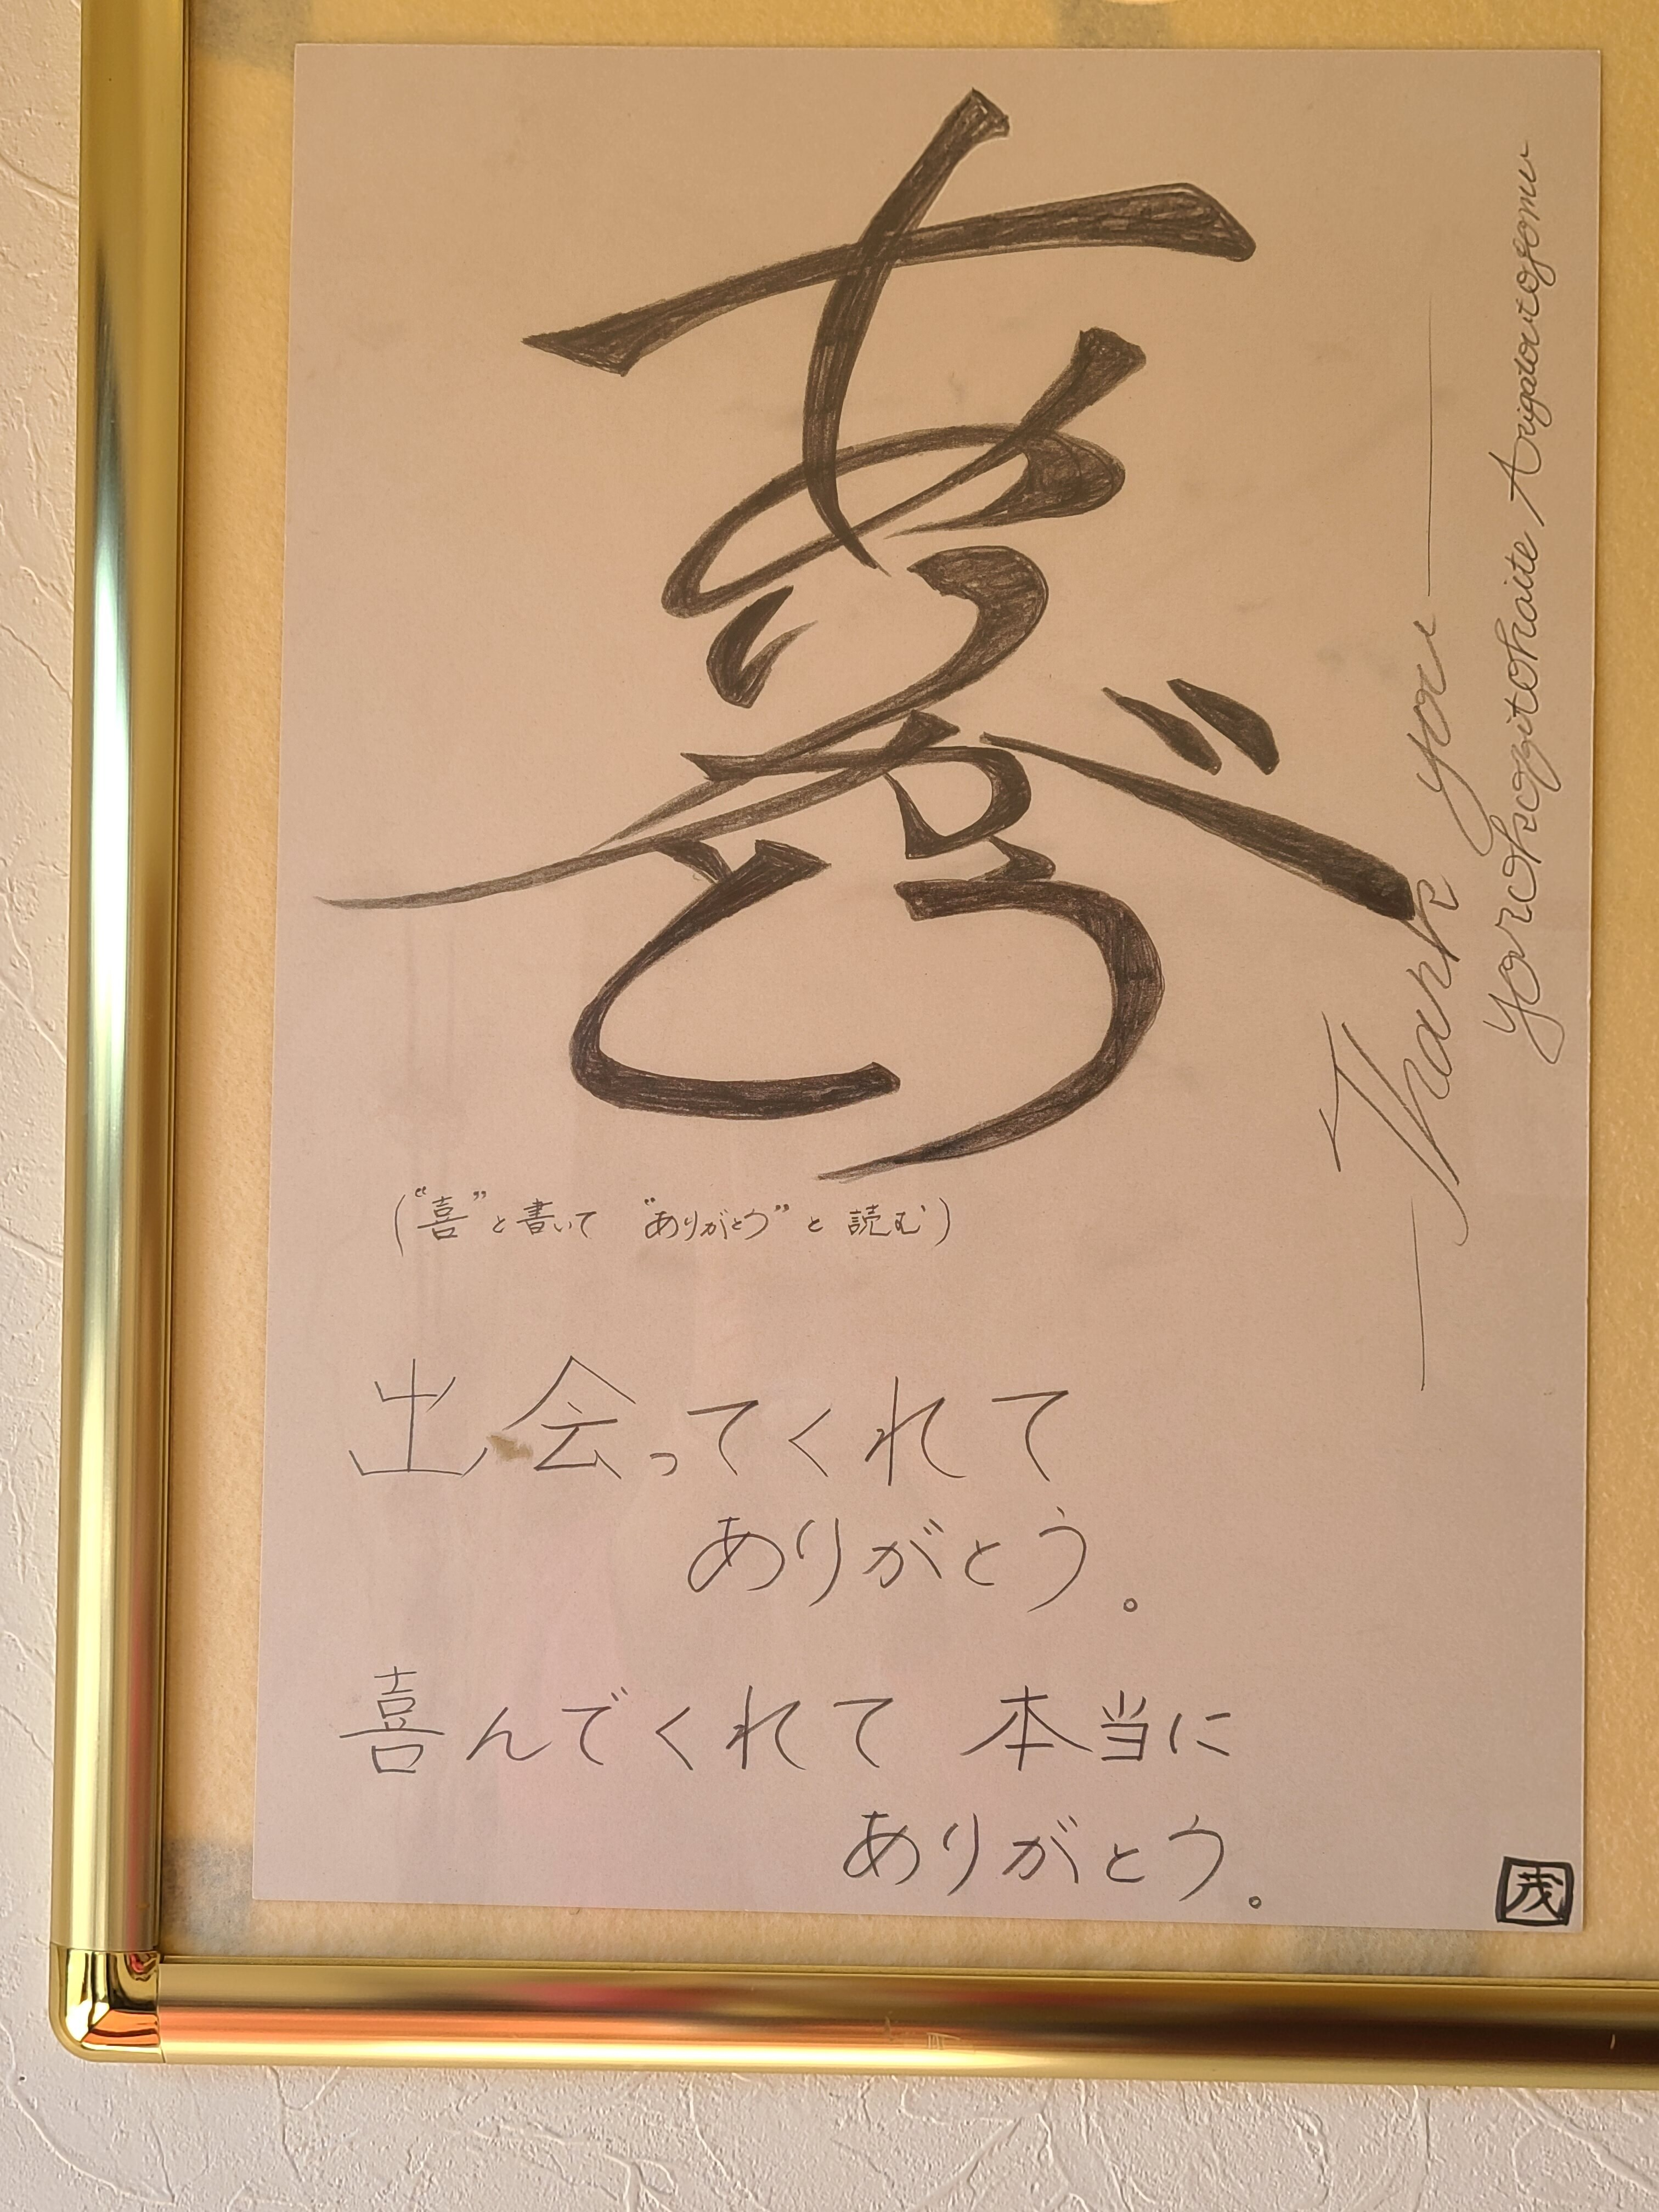 ありがとう
("喜"と書いて "ありがとう"と 読む)
出会ってくれて
ありがとう。
喜んでくれて 本当に
ありがとう。
Thank you
yorokobitokaite Arigatoutoyomu
茂